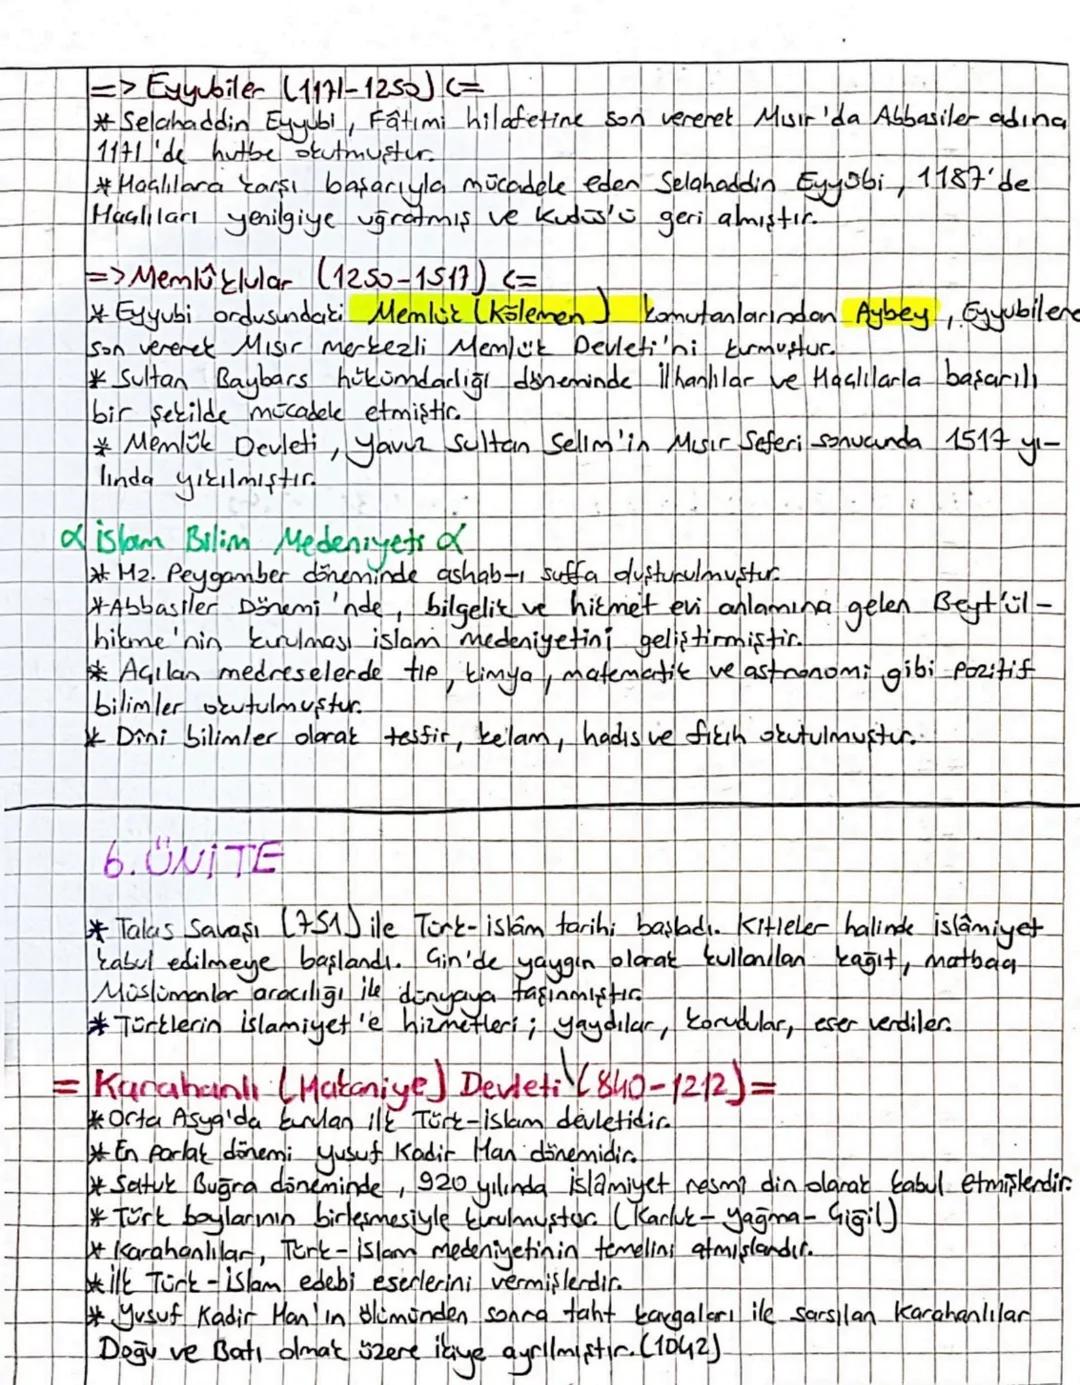 => Eyyubiler (1171-1250) <=
* Selahaddin Eyyubi, Fâtımi hilafetine son vererek Mısır'da Abbasiler adına
1171'de hutbe okutmuştur.
* Haçlılara karşı başarıyla mücadele eden Selahaddin Eyyübi, 1187'de
Haçlıları yenilgiye uğratmış ve Kudüs'ü geri almıştır.
=> Memlûklular (1250-1517) <=
* Eyyubi ordusundaki Memlük (Kölemen) komutanlarından Aybey, Eyyubilere
son vererek Mısır merkezli Memlük Devleti'ni kurmuştur.
* Sultan Baybars hükümdarlığı döneminde İlhanlılar ve Haçlılarla başarılı
bir şekilde mücadele etmiştir.
* Memlük Devleti, Yavuz Sultan Selim'in Mısır Seferi sonucunda 1517 yı-
lında yıkılmıştır.
α İslam Bilim Medeniyeti α
* Hz. Peygamber döneminde ashab-ı suffa oluşturulmuştur.
* Abbasiler Dönemi'nde, bilgelik ve hikmet evi anlamına gelen Beyt'ül-
hikme'nin kurulması islam medeniyetini geliştirmiştir.
* Açılan medreselerde tıp, kimya, matematik ve astronomi gibi pozitif
bilimler okutulmuştur.
* Dini bilimler olarak tesfir, kelam, hadis ve fıkıh okutulmuştur.
6. ÜNİTE
* Talas Savaşı (751) ile Türk-islâm tarihi başladı. Kitleler halinde islâmiyet
kabul edilmeye başlandı. Çin'de yaygın olarak kullanılan kağıt, matbaa
Müslümanlar aracılığı ile dünyaya taşınmıştır.
* Türklerin islamiyet'e hizmetleri; yaydılar, korudular, eser verdiler.
= Karahanlı (Hakaniye) Devleti (840-1212) =
* Orta Asya'da kurulan ilk Türk-islam devletidir.
* En parlak dönemi Yusuf Kadir Han dönemidir.
* Satuk Buğra döneminde, 920 yılında islâmiyet resmi din olarak kabul etmişlerdir.
* Türk boylarının birleşmesiyle kurulmuştur. (Karluk-Yağma-Çiğil)
* Karahanlılar, Türk-islam medeniyetinin temelini atmışlardır.
* İlk Türk-islam edebi eserlerini vermişlerdir.
* Yusuf Kadir Han'ın ölümünden sonra taht kavgaları ile sarsılan Karahanlılar
Doğu ve Batı olmak üzere ikiye ayrılmıştır. (1042)